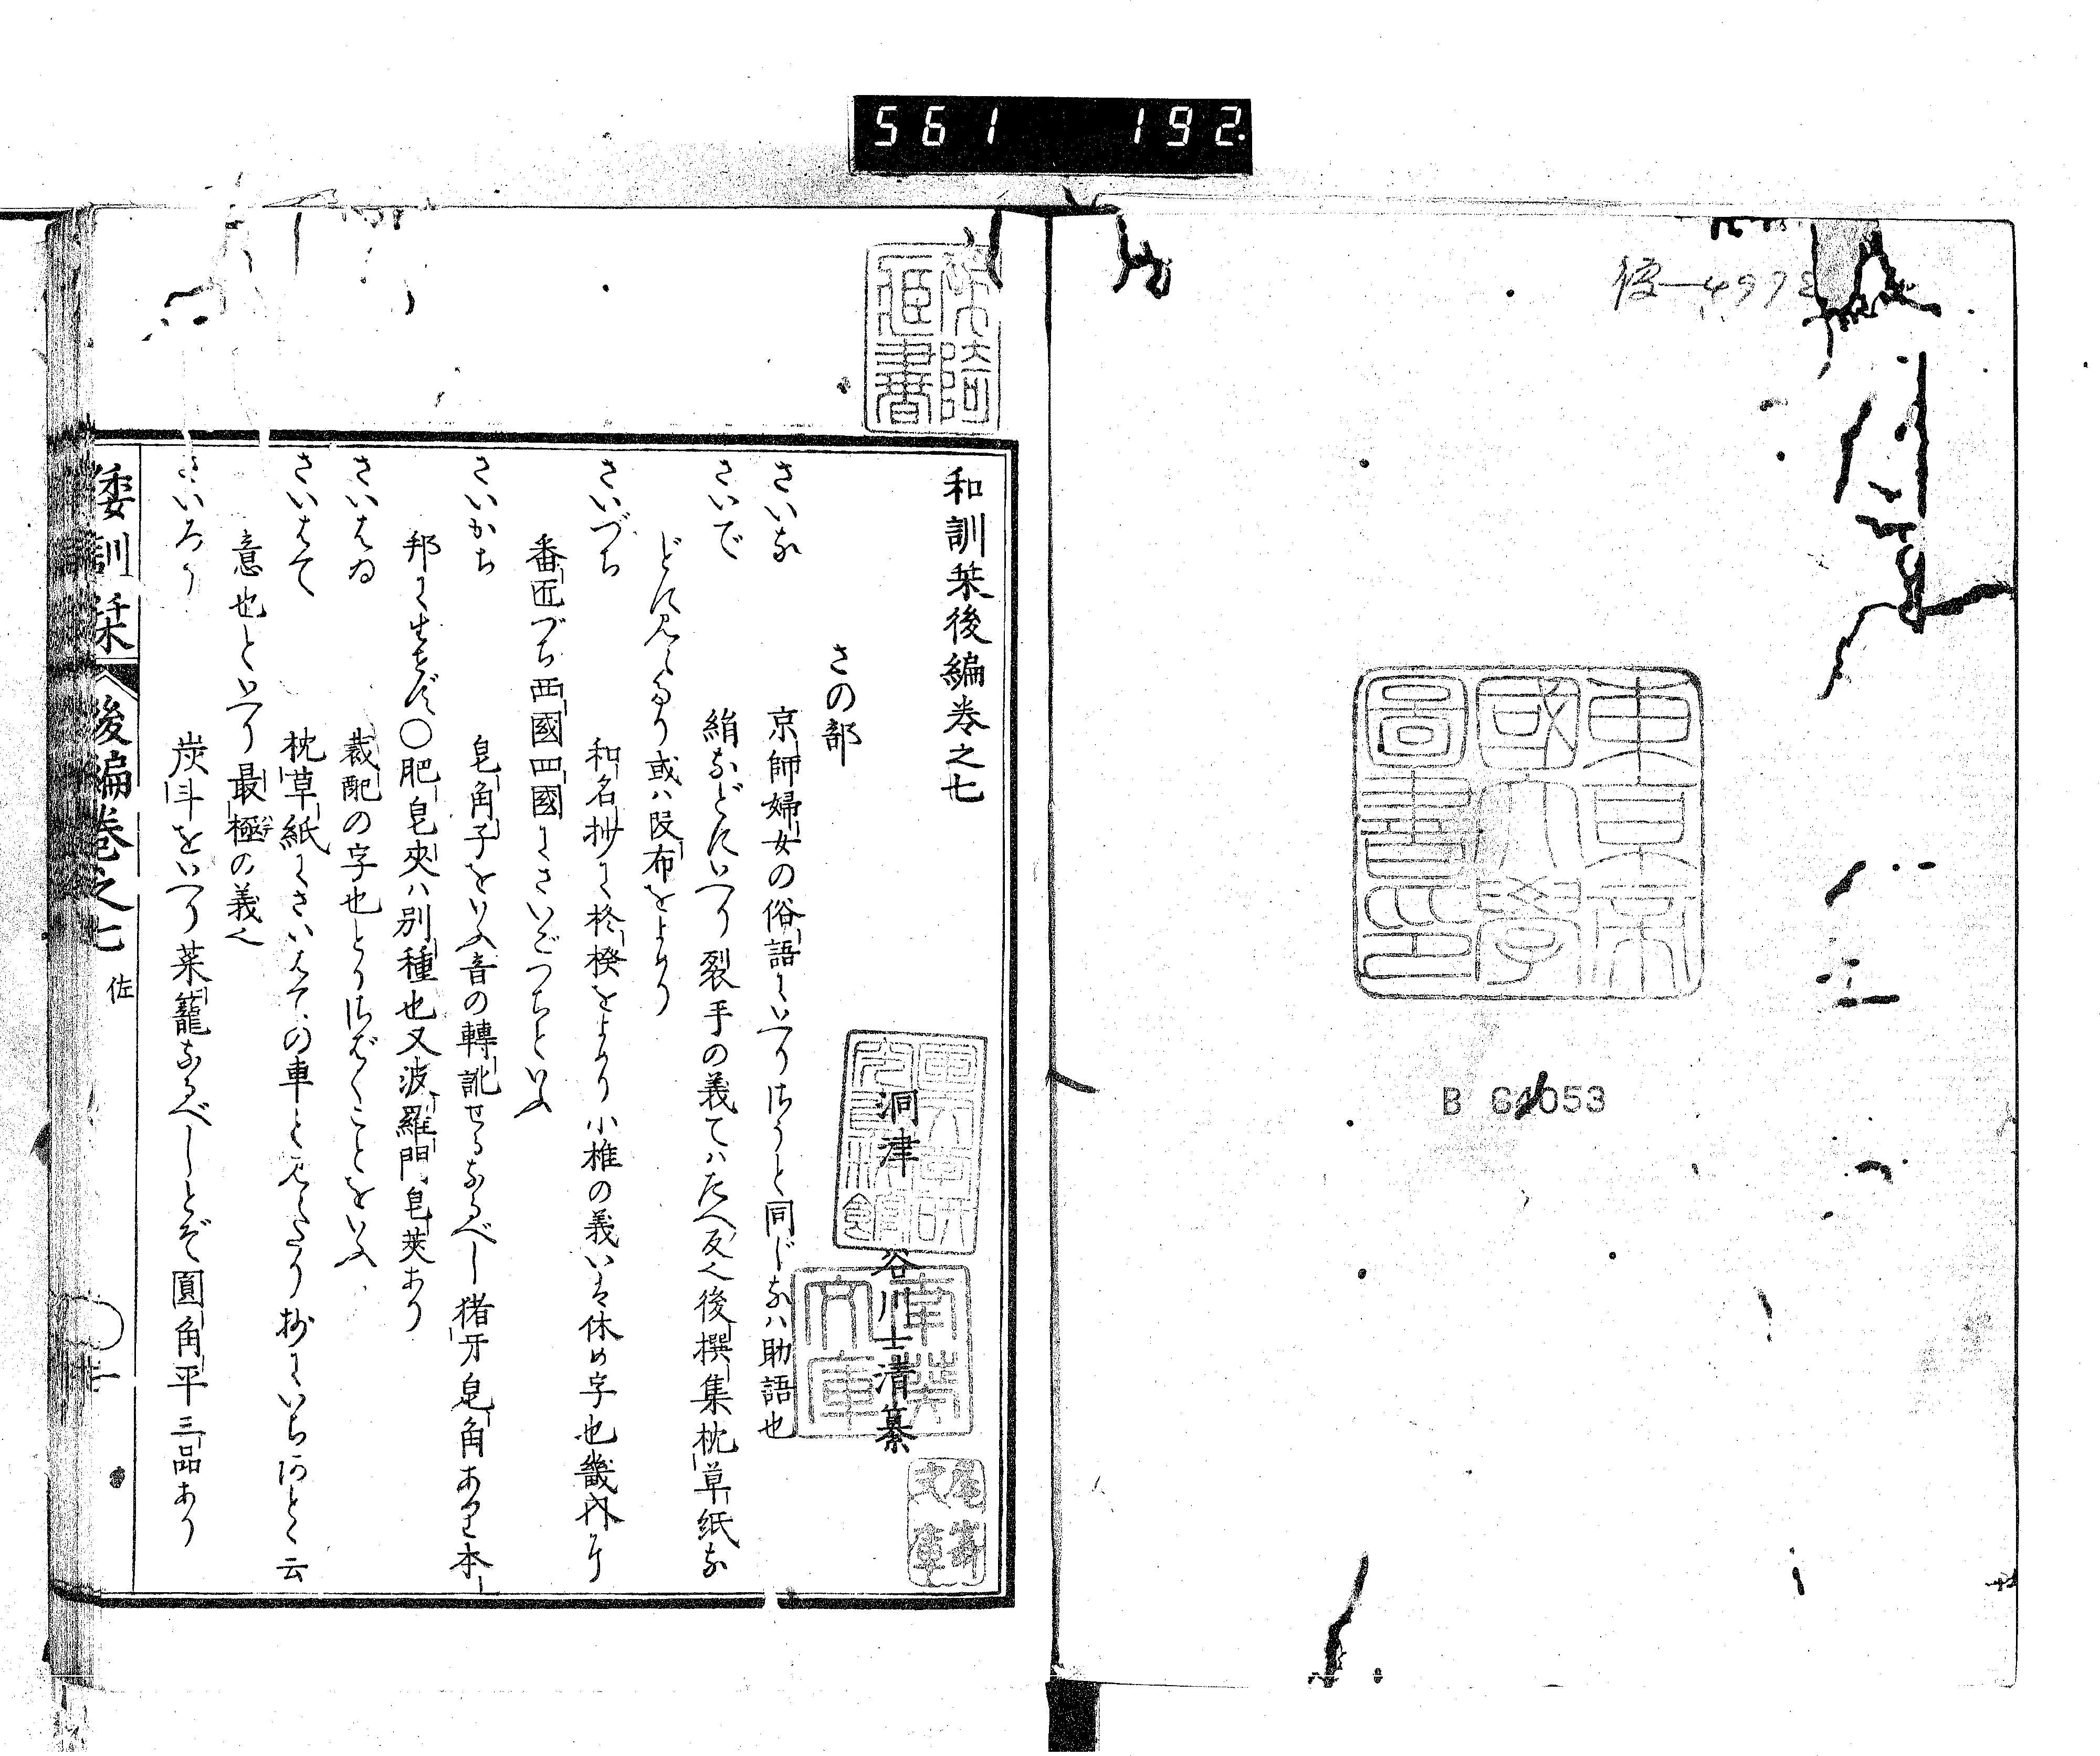 561 192
B 64053
東京帝
國大學
圖書印
和訓栞後編巻之七
洞津 谷川士清纂
さの部
さいな 京師婦女の俗語にいへりさうと同じなハ助語也
さいで 絹などにいへり裂手の義てハたへ反也後撰集枕草紙な
どに見えたり或ハ段布をよめり
さいづち 和名抄に柊楑をよめり小椎の義いは休め字也畿内にて
番匠づち西國四國にさいごつちといふ
さいかち 皂角子をいふ音の轉訛せるなるべし猪牙皂角あり本
邦に生せず〇肥皂夾ハ別種也又波羅門皂莢あり
さいはゐ 裁配の字也とりさばくことをいふ
さいはて 枕草紙にさいはての車と見えたり抄にいちはとく云
意也といへり最極の義也
さいろり 炭斗をいへり菜籠なるべしとぞ圓角平三品あり
倭訓栞 後編巻之七 佐 一
南葵
文庫